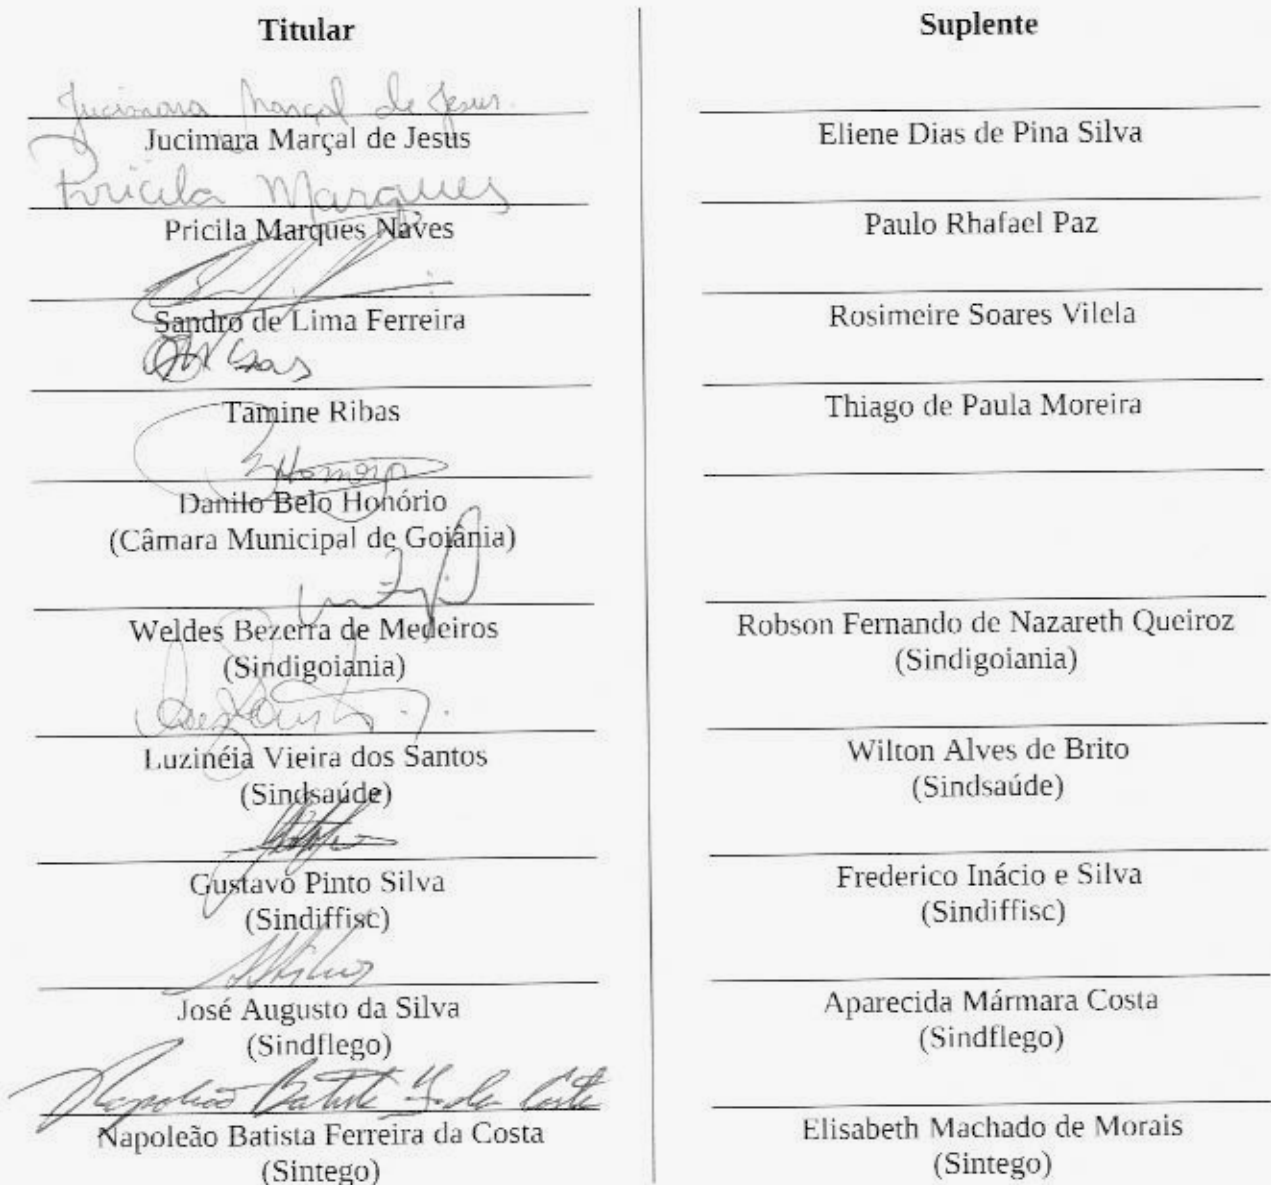 Titular
Jucimara Marçal de Jesus
Jucimara Marçal de Jesus
Pricila Marques
Pricila Marques Naves
Sandro de Lima Ferreira
Tamine Ribas
Danilo Belo Honório
(Câmara Municipal de Goiânia)
Weldes Bezerra de Medeiros
(Sindigoiania)
Luzinéia Vieira dos Santos
(Sindsaúde)
Gustavo Pinto Silva
(Sindiffisc)
José Augusto da Silva
(Sindflego)
Napoleão Batista
Napoleão Batista Ferreira da Costa
(Sintego)
Suplente
Eliene Dias de Pina Silva
Paulo Rhafael Paz
Rosimeire Soares Vilela
Thiago de Paula Moreira
Robson Fernando de Nazareth Queiroz
(Sindigoiania)
Wilton Alves de Brito
(Sindsaúde)
Frederico Inácio e Silva
(Sindiffisc)
Aparecida Mármara Costa
(Sindflego)
Elisabeth Machado de Morais
(Sintego)